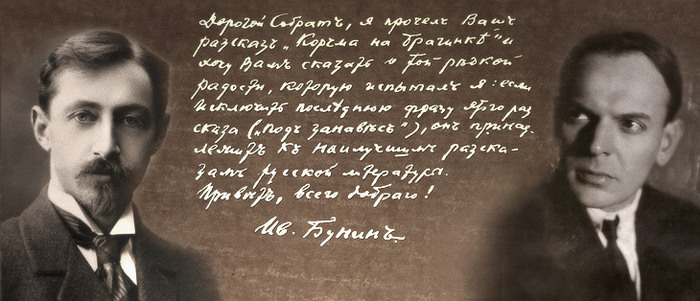 Дорогой Собратъ, я прочелъ Вашъ
разсказъ „Корчма на Брагинкѣ" и
хочу Вамъ сказать о той рѣдкой
радости, которую испыталъ я: если
исключить послѣднюю фразу этого раз
сказа („подъ занавѣсъ"), онъ принад-
лежитъ къ наилучшимъ разска-
замъ русской литературы.
Привѣтъ, всего добраго!
Ив. Бунинъ.